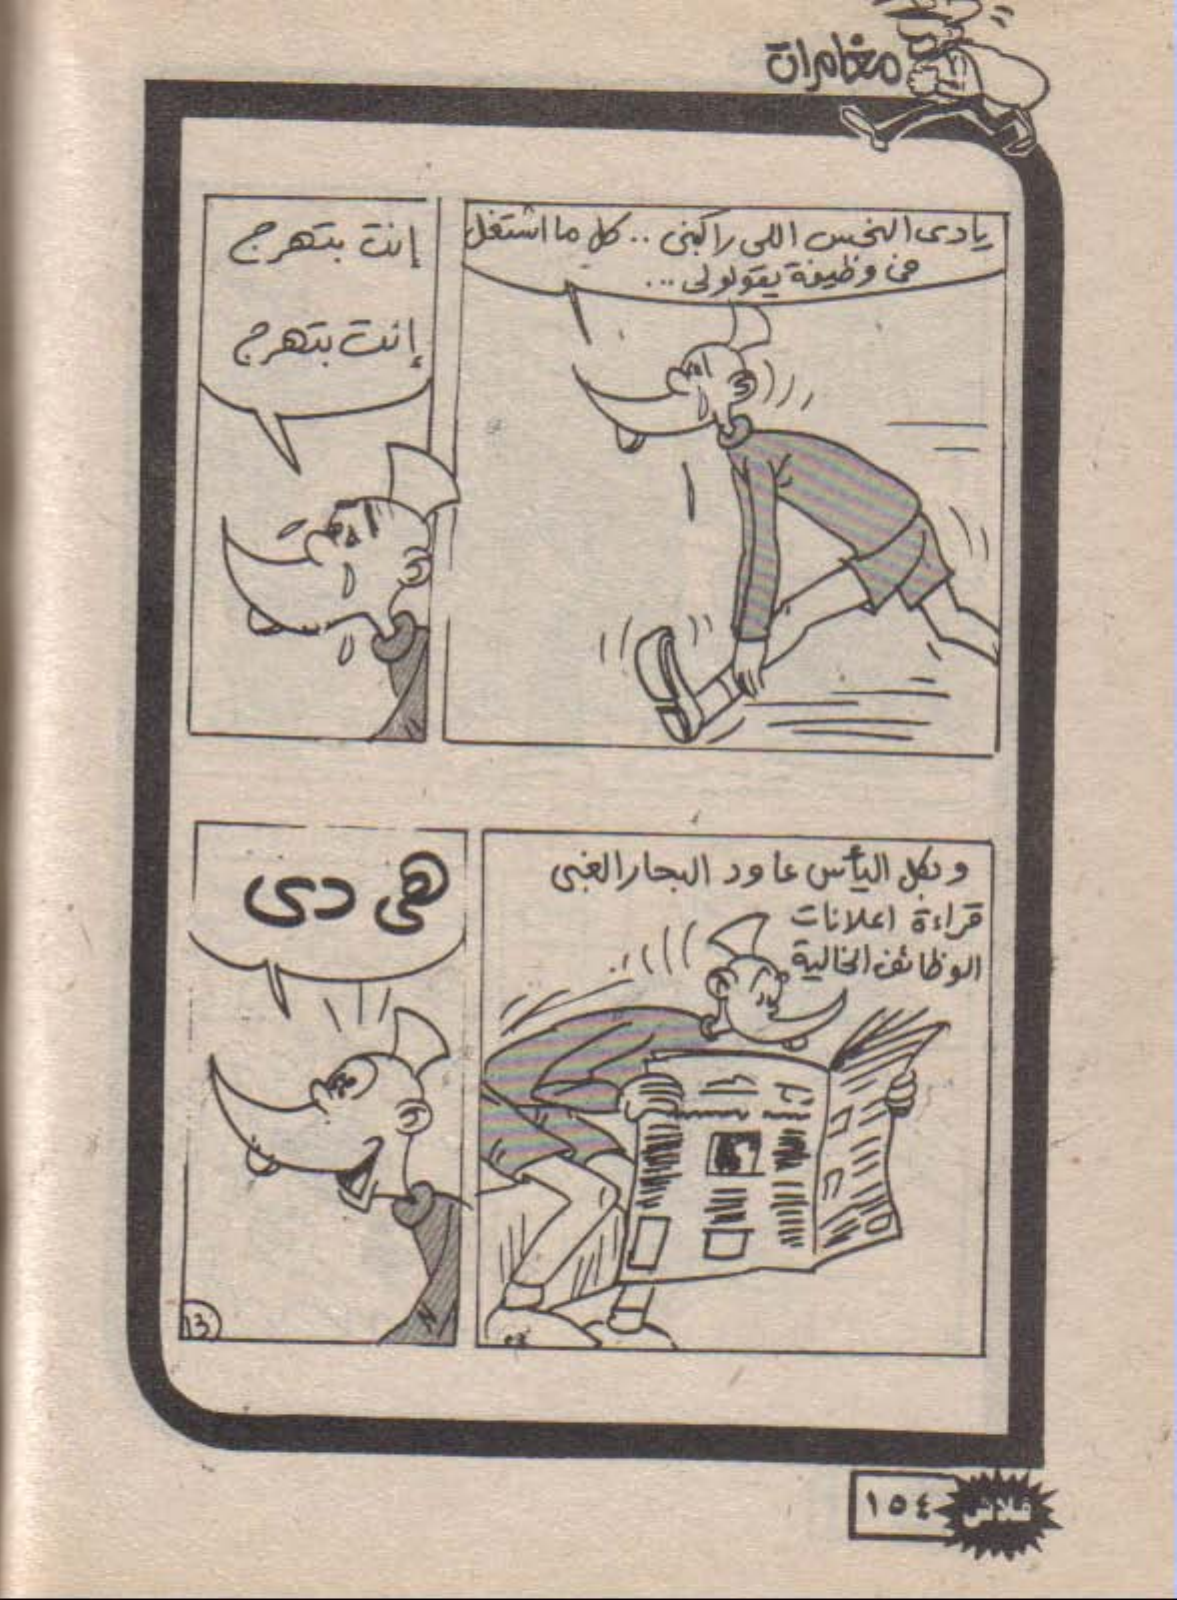 مغامرات
يادى النحس اللى راكبنى .. كل ما اشتغل
فى وظيفة يقولولى ...
إنت بتهرج
إنت بتهرج
وبكل اليأس عاود البحار الغبى
قراءة اعلانات
الوظائف الخالية
هى دى
13
فلاش
١٥٤